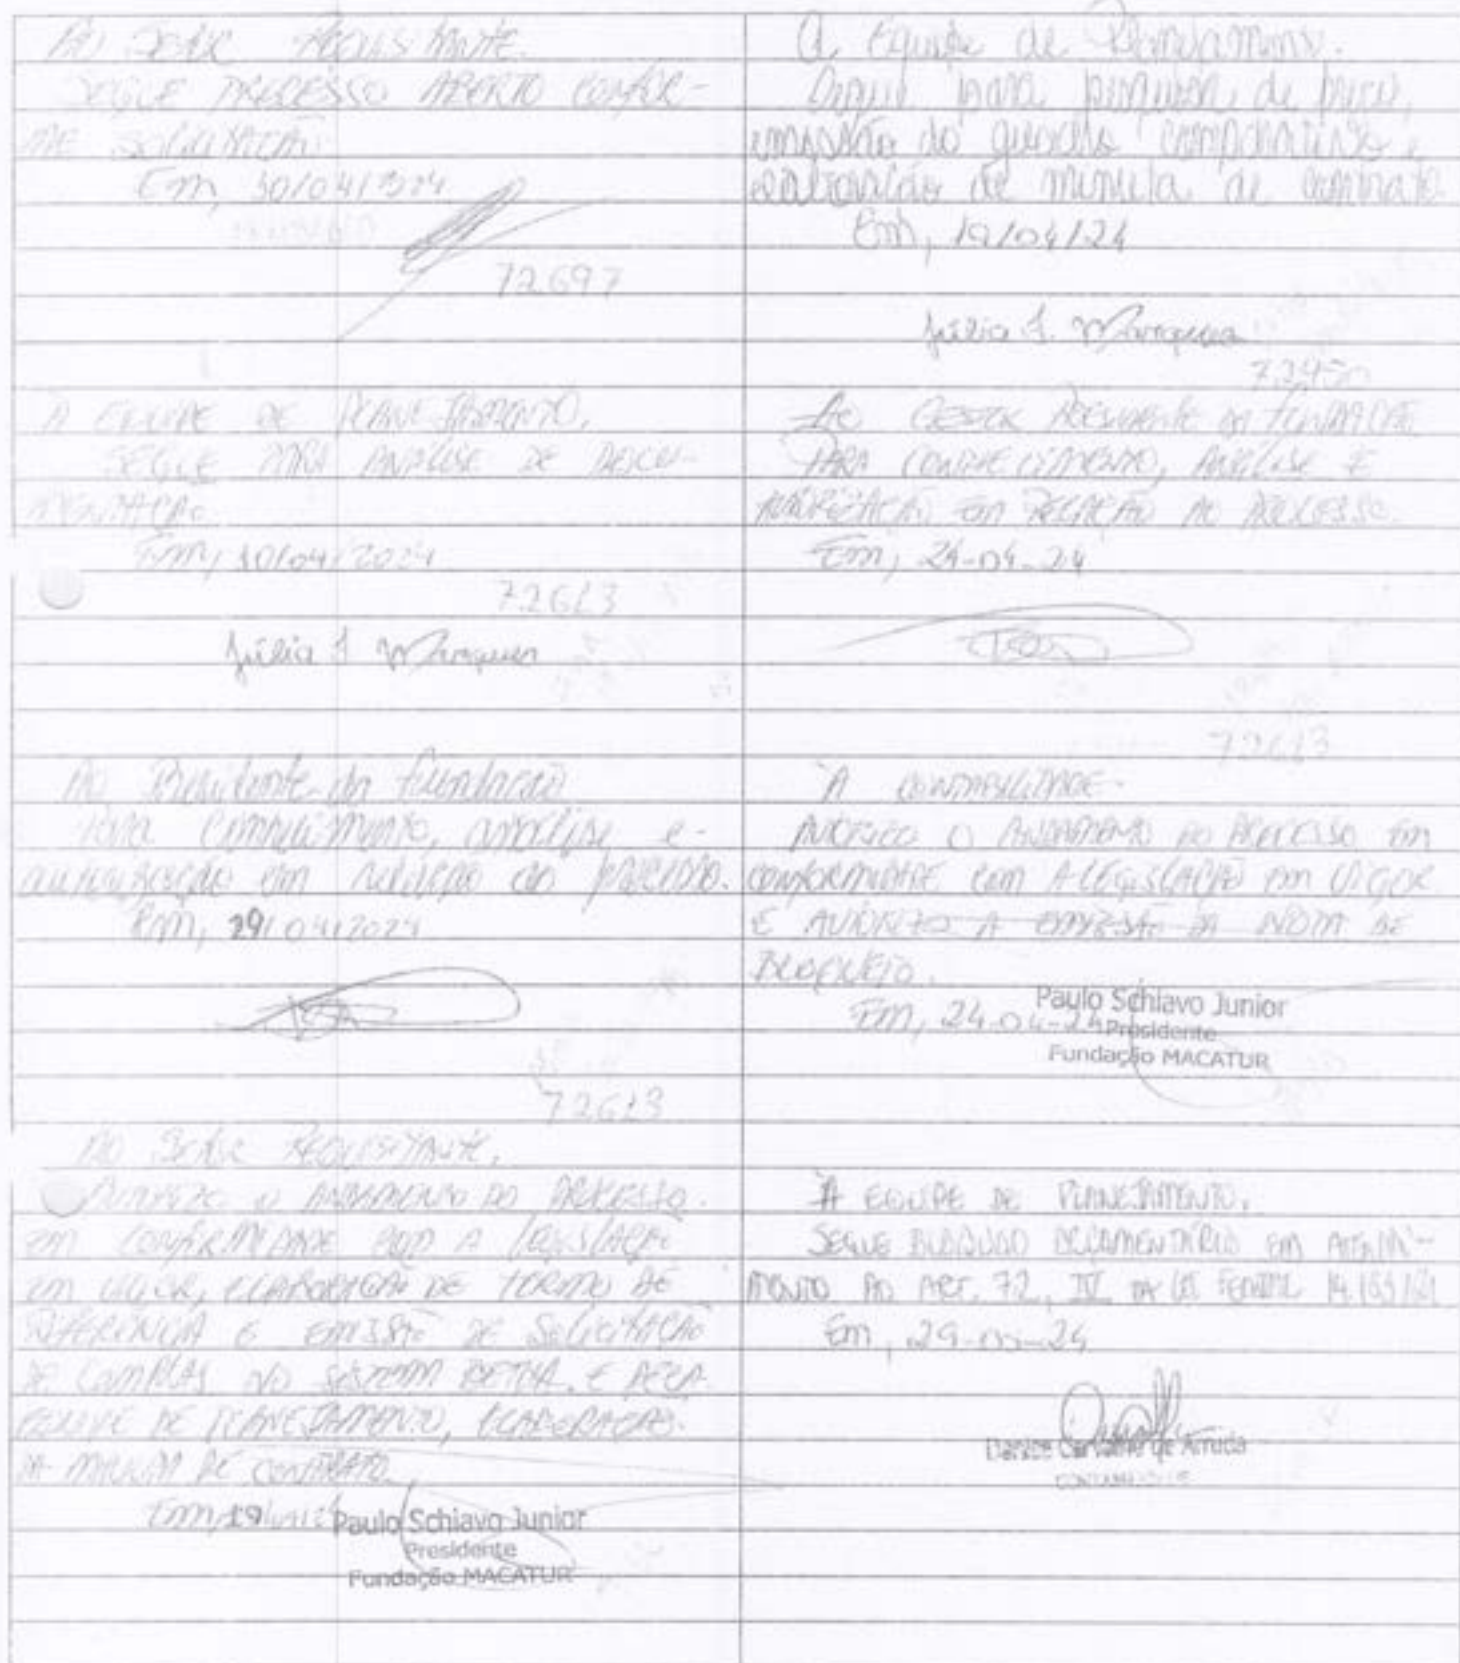 AO SETOR REQUISITANTE.
SEGUE PROCESSO ABERTO CONFOR-
ME SOLICITAÇÃO
Em, 10/04/2024
72.697
À EQUIPE DE PLANEJAMENTO,
SEGUE PARA ANÁLISE DE DOCU-
MENTAÇÃO
Em, 10/04/2024
72613
Júlia S. Marques
Ao Presidente da Fundação
Para conhecimento, análise e
autorização em relação ao processo.
Em, 29/04/2024
72613
AO SETOR REQUISITANTE,
AUTORIZO O ANDAMENTO DO PROCESSO
EM CONFORMIDADE COM A LEGISLAÇÃO
EM VIGOR, ELABORAÇÃO DE TERMO DE
REFERÊNCIA E EMISSÃO DE SOLICITAÇÃO
DE COMPRAS NO SISTEMA BETHA. E PELA
EQUIPE DE PLANEJAMENTO, ELABORAÇÃO
DA MINUTA DE CONTRATO.
Em,
Paulo Schiavo Junior
Presidente
Fundação MACATUR
A Equipe de Planejamento.
Segue para pesquisa de preço,
emissão do quadro comparativo e
elaboração de minuta de contrato.
Em, 19/04/24
Júlia S. Marques
72950
Ao GESTOR PRESIDENTE DA FUNDAÇÃO
PARA CONHECIMENTO, ANÁLISE E
AUTORIZAÇÃO EM RELAÇÃO AO PROCESSO.
Em, 24-04-24
72613
À CONTABILIDADE.
AUTORIZO O ANDAMENTO DO PROCESSO EM
CONFORMIDADE COM A LEGISLAÇÃO EM VIGOR
E AUTORIZO A EMISSÃO DA NOTA DE
BLOQUEIO.
Em, 24-04-24
Paulo Schiavo Junior
Presidente
Fundação MACATUR
À EQUIPE DE PLANEJAMENTO,
SEGUE BLOQUEIO ORÇAMENTÁRIO EM ATENDI-
MENTO AO ART. 72, IV DA LEI FEDERAL 14.133/21
Em,
Carvalho de Arruda